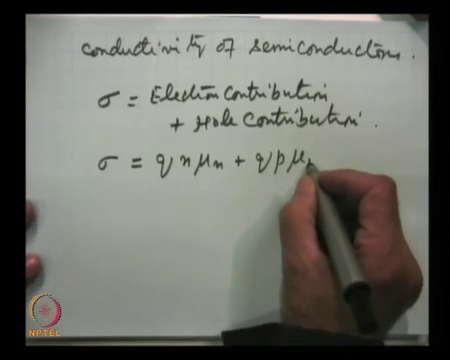 conductivity of semiconductors.
σ = Electron contribution
+ Hole contribution.
σ = q n μn + q p μ
NPTEL